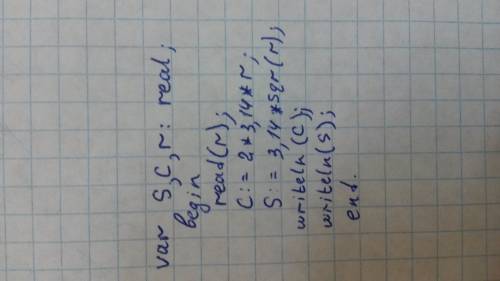 var S,C,r: real;
begin
read(r);
C:=2*3,14*r;
S:=3,14*sqr(r);
writeln(C);
writeln(S);
end.